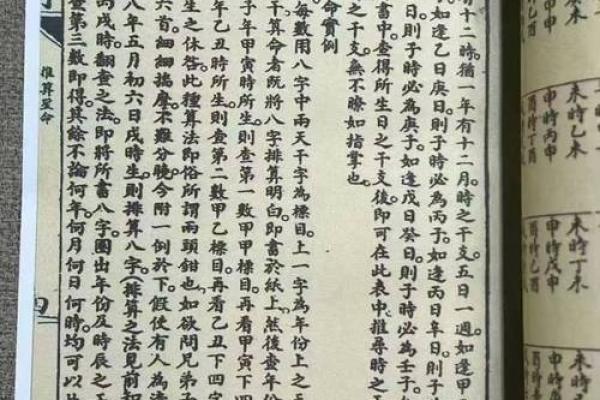 有十二時猶一年有十二月時之干支五日一週如逢甲
如逢乙日庚日則子時必為丙子如逢丙日辛日則子
日則子時必為庚子如逢戊日癸日則子時必為壬子
書中查得所生日之干支後即可在此表中推尋時之
之干支無不瞭如指掌也
命實例
每數用八字中兩天干字為標目上一字為年份上之天
干算命者既將八字排算明白即書於紙上然後查年份
子年甲寅時所生則查第一數甲甲標目再看甲寅下四
年乙丑時所生則查第二數甲乙標目再看乙丑下四字
生之休咎此種算法即俗所謂兩頭鉗也如欲問兄弟子
六首細細揣摩不難分曉今附一例於下假使有人為
八年五月初六日戌時生則排算八字(排算之法見前
丙戌時翻查之法即將所書八字圈出年份及時辰之
查第三數即得其餘不論何年何月何日何時均可以
推算星命
四
未時乙未
申時丙申
酉時丁酉
未時丁未
申時戊申
酉時己酉